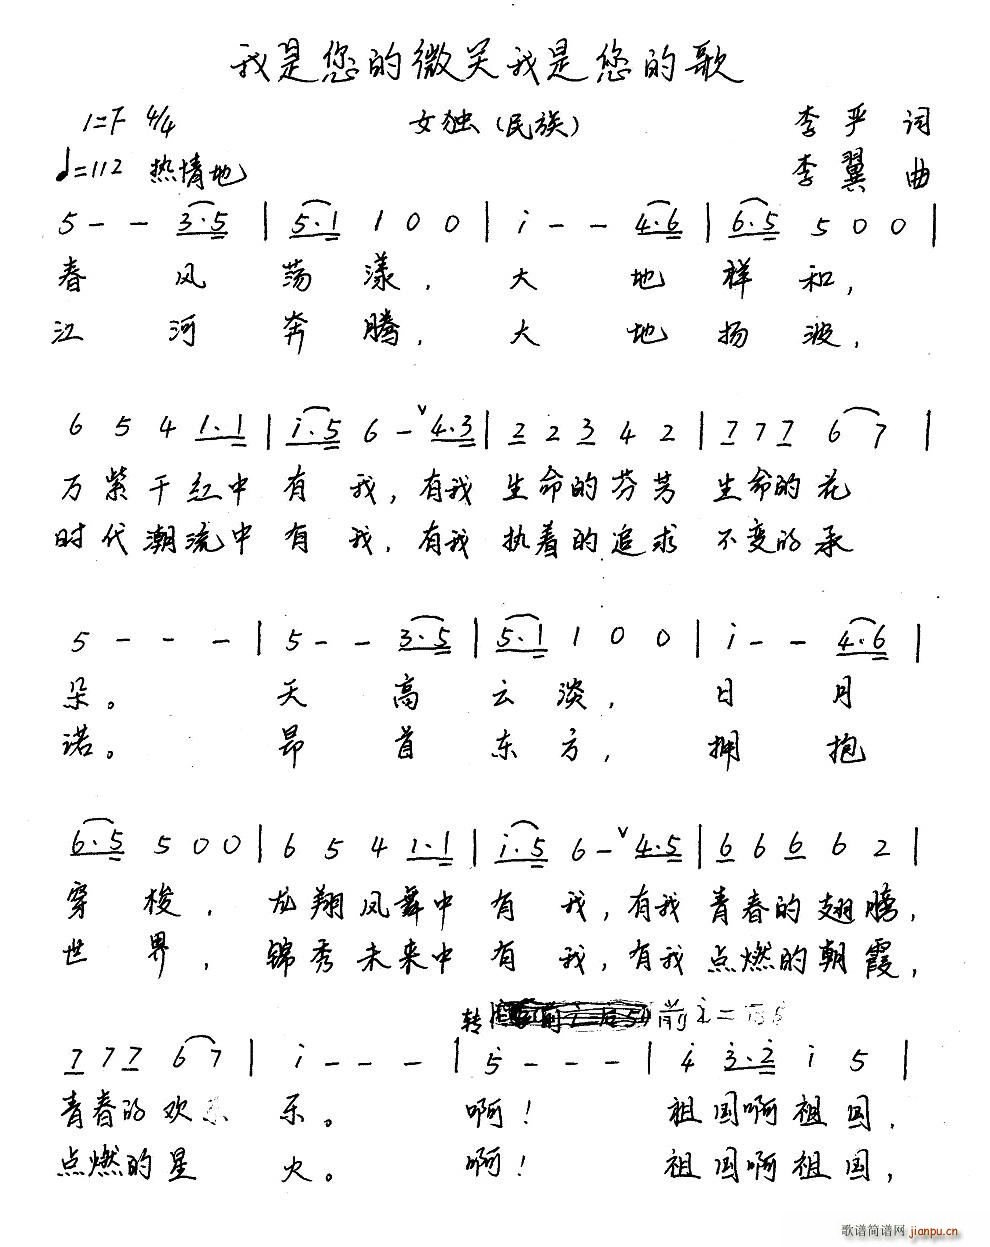 我是您的微笑我是您的歌
1=F 4/4 女独(民族) 李严 词
♩=112 热情地 李翼 曲
5 - - 3·5 | 5·1 1 0 0 | i - - 4·6 | 6·5 5 0 0 |
春 风 荡 漾, 大 地 祥 和,
江 河 奔 腾, 大 地 扬 波,
6 5 4 1·1 | i·5 6 - ∨ 4·3 | 2 2 3 4 2 | 7 7 7 6 7 |
万紫千红中 有 我,有我 生命的芬芳 生命的花
时代潮流中 有 我,有我 执着的追求 不变的承
5 - - - | 5 - - 3·5 | 5·1 1 0 0 | i - - 4·6 |
朵。 天 高 云 淡, 日 月
诺。 昂 首 东 方, 拥 抱
6·5 5 0 0 | 6 5 4 1·1 | i·5 6 - ∨ 4·5 | 6 6 6 6 2 |
穿 梭, 龙翔凤舞中 有 我,有我 青春的翅膀,
世 界, 锦秀未来中 有 我,有我 点燃的朝霞,
转 前 i =
7 7 7 6 7 | i - - - | 5 - - - | 4 3·2 i 5 |
青春的欢 乐。 啊! 祖国啊祖国,
点燃的星 火。 啊! 祖国啊祖国,
歌谱简谱网 jianpu.cn